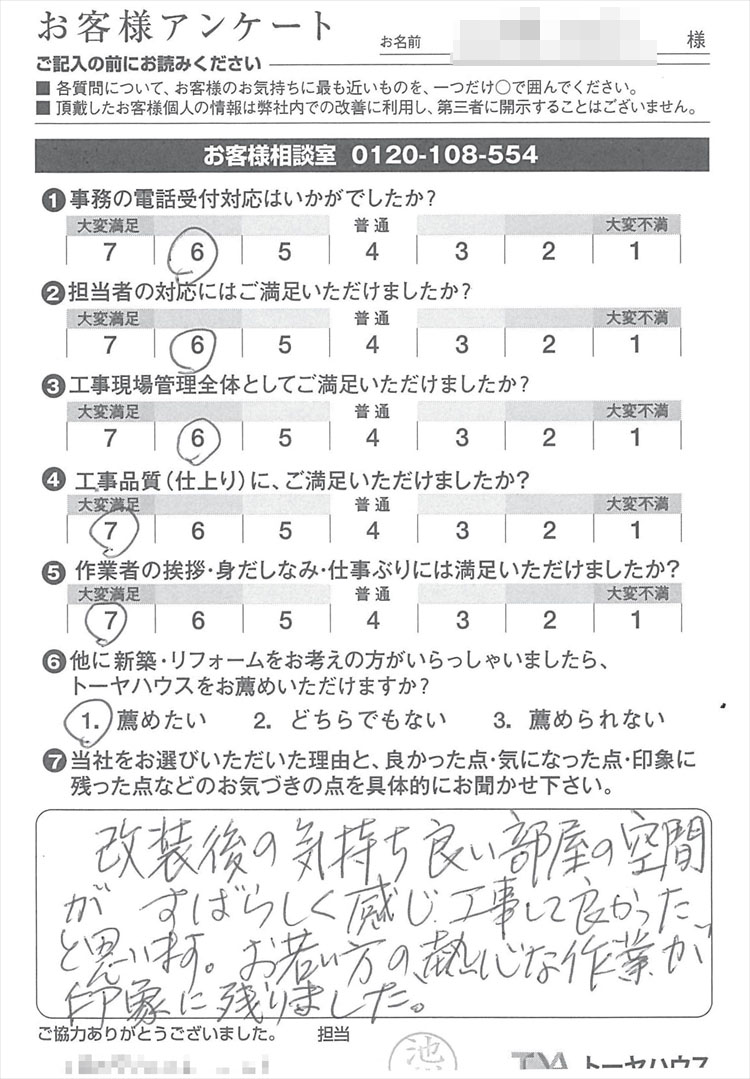 お客様アンケート
お名前 様
ご記入の前にお読みください
■ 各質問について、お客様のお気持ちに最も近いものを、一つだけ〇で囲んでください。
■ 頂戴したお客様個人の情報は弊社内での改善に利用し、第三者に開示することはございません。
お客様相談室 0120-108-554
❶事務の電話受付対応はいかがでしたか?
大変満足 普通 大変不満
7 6 5 4 3 2 1
❷担当者の対応にはご満足いただけましたか?
大変満足 普通 大変不満
7 6 5 4 3 2 1
❸工事現場管理全体としてご満足いただけましたか?
大変満足 普通 大変不満
7 6 5 4 3 2 1
❹工事品質(仕上り)に、ご満足いただけましたか?
大変満足 普通 大変不満
7 6 5 4 3 2 1
❺作業者の挨拶・身だしなみ・仕事ぶりには満足いただけましたか?
大変満足 普通 大変不満
7 6 5 4 3 2 1
❻他に新築・リフォームをお考えの方がいらっしゃいましたら、
トーヤハウスをお薦めいただけますか?
1. 薦めたい 2. どちらでもない 3. 薦められない
❼当社をお選びいただいた理由と、良かった点・気になった点・印象に
残った点などのお気づきの点を具体的にお聞かせ下さい。
改装後の気持ち良い部屋の空間
が すばらしく感じ工事して良かった
と思います。お若い方の熱心な作業が
印象に残りました。
ご協力ありがとうございました。 担当
池
トーヤハウス